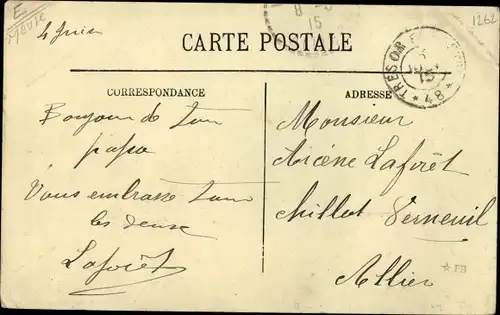 E
Meuse
4 Juin
8
15
1262
CARTE POSTALE
TRESOR E
15
* 48 *
CORRESPONDANCE
ADRESSE
Bonjour de ton
papa
Vous embrasse tous
les deux
Laforêt
Monsieur
Arcène Laforêt
chillot Verneuil
Allier
★ FB